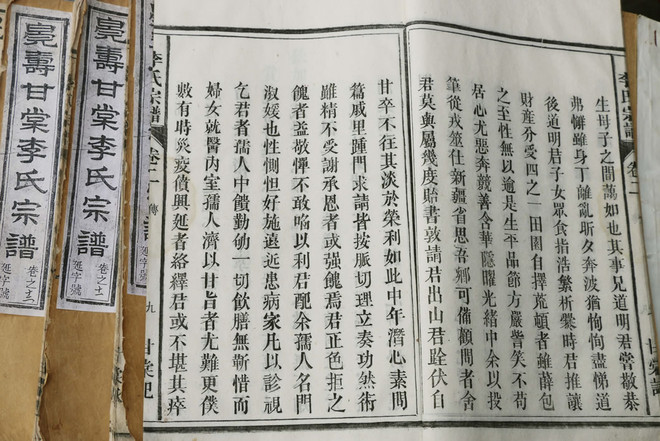 李氏宗譜
卷二
生母子之間藹如也其事兄道明君嘗敬恭
弗懈雖身丁離亂昕夕奔波猶恂恂盡悌道
後道明君子女眾食指浩繁析爨時君推讓
財產分受四之一田園自擇荒頓者雖薛包
之至性無以逾是生平品節方嚴訾笑不苟
居心尤惡奔競善含華隱曜光緒中余以投
筆從戎筮仕新疆省思吾鄉可備顧問者舍
君莫與屬幾度貽書敦請君出山君跧伏自
甘卒不往其淡於榮利如此中年潛心素問
篇戚里踵門求請皆按脈切理立奏功然術
雖精不受謝承恩者或強餽焉君正色拒之
餽者益敬憚不敢啗以利君配余孺人名門
淑媛也性惻怛好施遠近患病家凡以診視
乞君者孺人中饋勤劬一切飲膳無靳惜而
婦女就醫內室孺人濟以甘旨者尤難更僕
數有時災疫僨興延者絡繹君或不堪其瘁
李氏宗譜
卷二
傳
九
甘棠
壽甘棠李氏宗譜
卷之
延字號
壽甘棠李氏宗譜
卷之
延字號